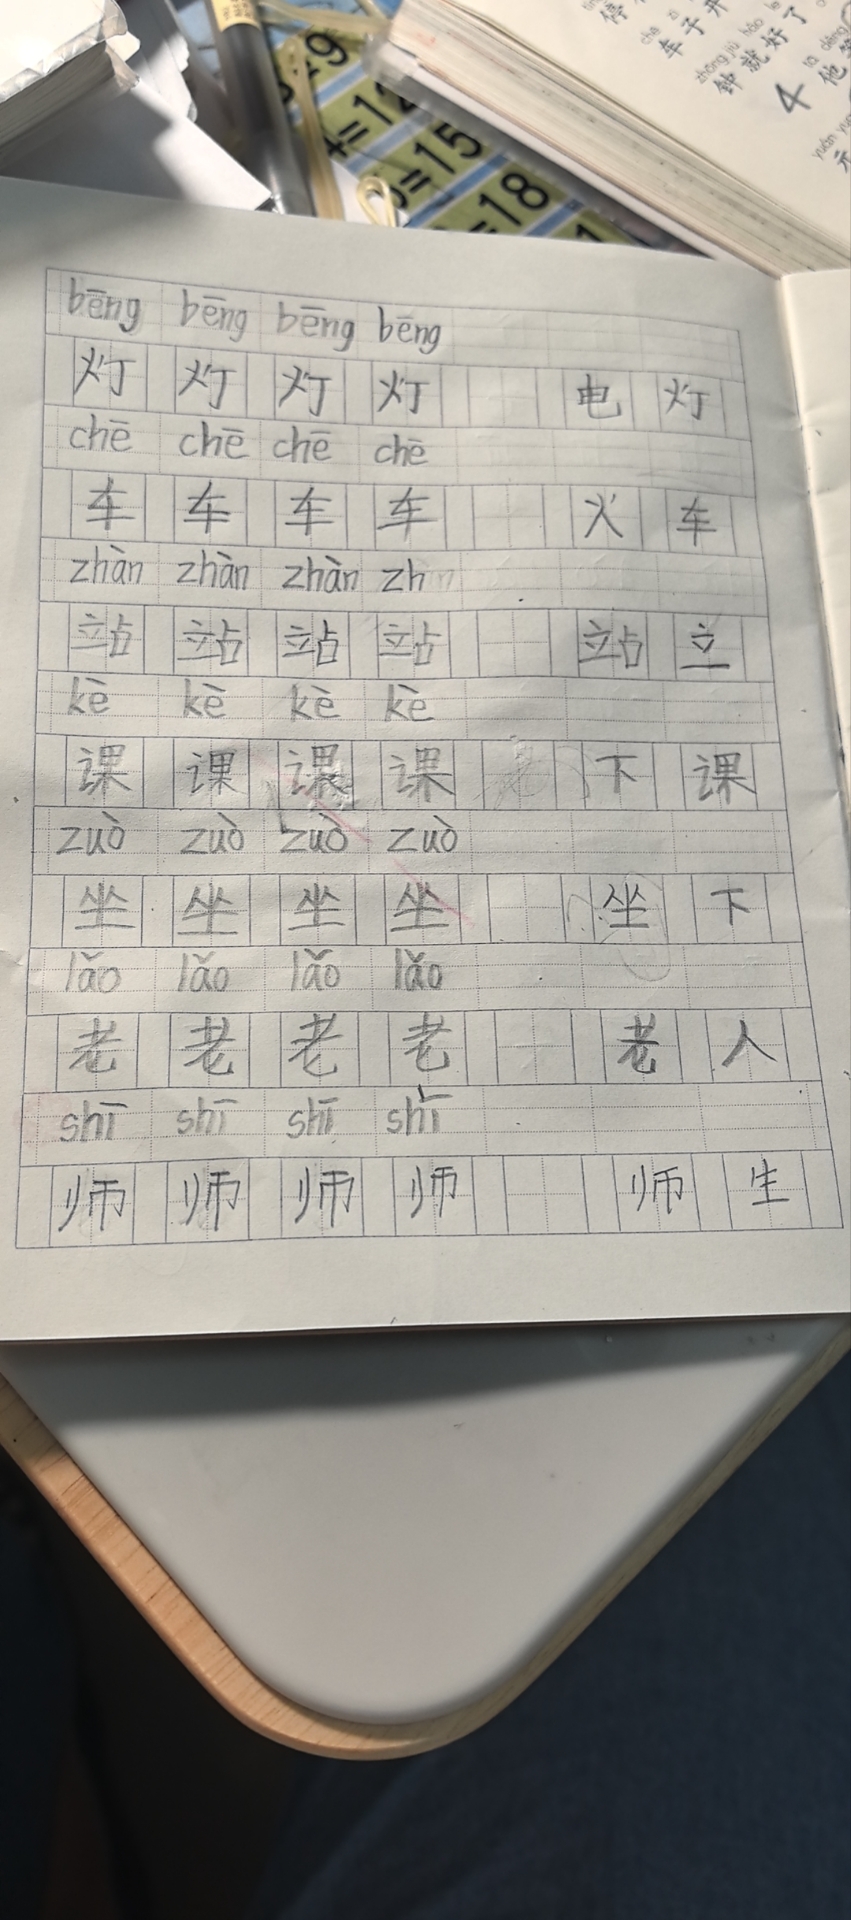 4=12
=15
=18
chē zi
车子开
zhōng jiù hǎo le
钟就好了
4 他
bēng bēng bēng bēng
灯 灯 灯 灯 电 灯
chē chē chē chē
车 车 车 车 火 车
zhàn zhàn zhàn zh
站 站 站 站 站 立
kē kè kè kè
课 课 课 课 下 课
zuò zuò zuò zuò
坐 坐 坐 坐 坐 下
lǎo lǎo lǎo lǎo
老 老 老 老 老 人
shī shī shī shī
师 师 师 师 师 生